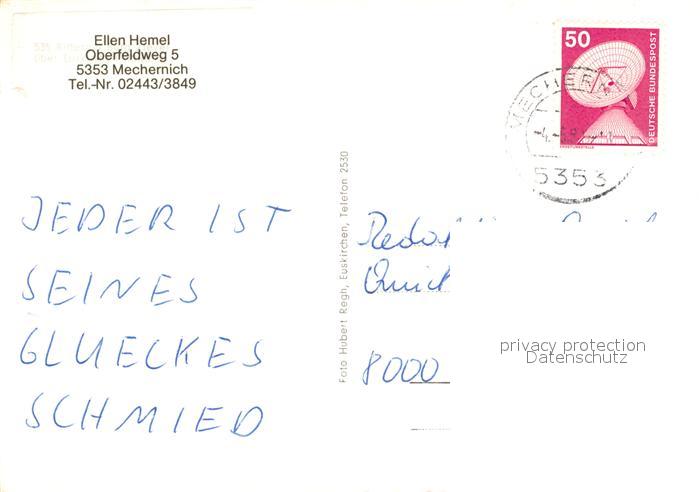 Ellen Hemel
Oberfeldweg 5
5353 Mechernich
Tel.-Nr. 02443/3849
50
DEUTSCHE BUNDESPOST
ERDEFUNKSTELLE
MECHER
5353
JEDER IST
SEINES
GLUECKES
SCHMIED
Foto Hubert Regh, Euskirchen, Telefon 2530
Quick
8000
privacy protection
Datenschutz